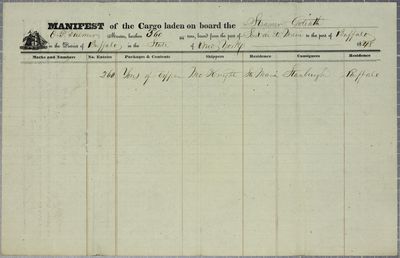 MANIFEST of the Cargo laden on board the Steamer Goliath
Master, burthen 360 tons, bound from the port of Sault St Marie to the port of Buffalo
in the District of Buffalo in the State of New York 1848
Marks and Numbers No. Entries Packages & Contents Shippers Residence Consignees Residence
260 Tons of Copper McKnight St Marie Buffalo